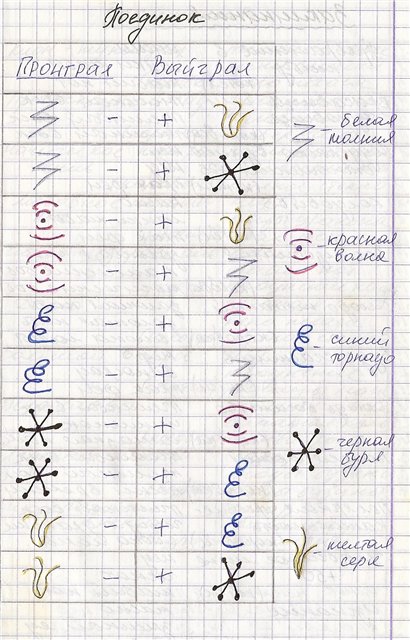 Поединок
Проиграл Выйграл
- +
- +
- +
- +
- +
- +
- +
- +
- +
- +
- белая
молния
- красная
волна
- синий
торнадо
- черная
буря
- желтая
сера